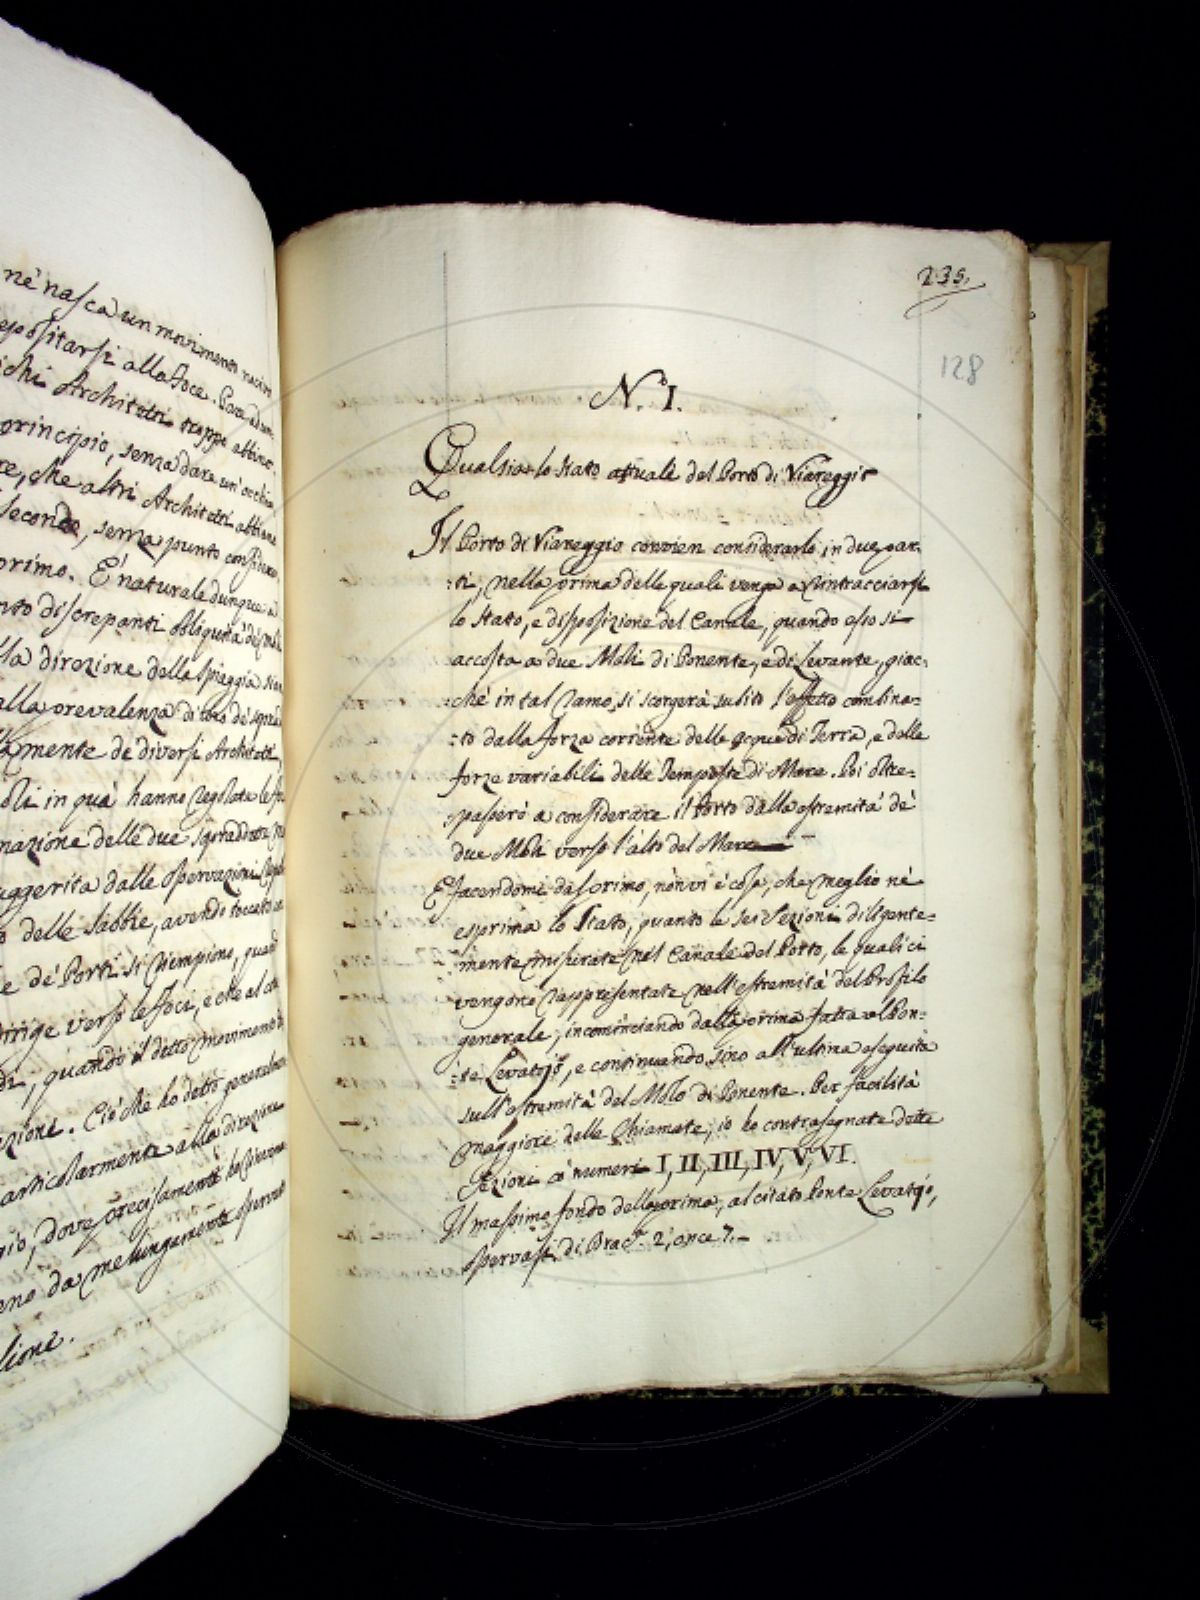 nè nasca un movimento
epositarsi alla Foce.
chi Architetti troppo abbino
principio, senza dare un'occhia
re, che altri Architetti abbiano
secondo, senza punto considerar
primo. È naturale dunque
nto discrepanti obliquità de'
la direzione della Spiaggia
alla prevalenza di uno de'
amente de' diversi Architetti,
oli in quà hanno regolate le
nazione delle due sopraddette
uggerita dalle Osservazioni
o delle Sabbie, avendo toccato
e de' Porti si riempiono, quand
dirige verso le Foci, e che al
di, quando il detto movimento
ezione. Ciò che ho detto generalmente
articolarmente alla direzione
gio, dove precisamente
eno da me lungamente osservat
zione.
235.
128
N.º I.
Qual sia lo stato attuale del Porto di Viareggio
Il Porto di Viareggio convien considerarlo in due par-
:ti, nella prima delle quali venga a rintracciarsi
lo stato, e disposizione del Canale, quando esso si
accosta a due Moli di Ponente, e di Levante, giac:
:chè in tal ramo si scorgerà subito l'effetto combina=
:to dalla forza corrente delle acque di Terra, e dalle
forze variabili delle Tempeste di Mare. Poi oltre=
:passerò a considerare il Porto dalla estremità de'
due Moli verso l'alto del Mare
E facendomi dal primo, non vi è cosa, che meglio nè
esprima lo Stato, quanto le sei Sezioni diligente=
mente misurate nel Canale del Porto, le quali ci
vengono rappresentate nell'estremità del Profilo
generale, incominciando dalla prima fatta al Pon:
:te Levatojo, e continuando sino all'ultima eseguita
sull'estremità del Molo di Ponente. Per facilità
maggiore delle Chiamate, io ho contrasegnate dette
Sezioni co' numeri I, II, III, IV, V, VI.
Il massimo fondo della prima, al citato Ponte Levatojo,
osservasi di Brac.ª 2, once 7.